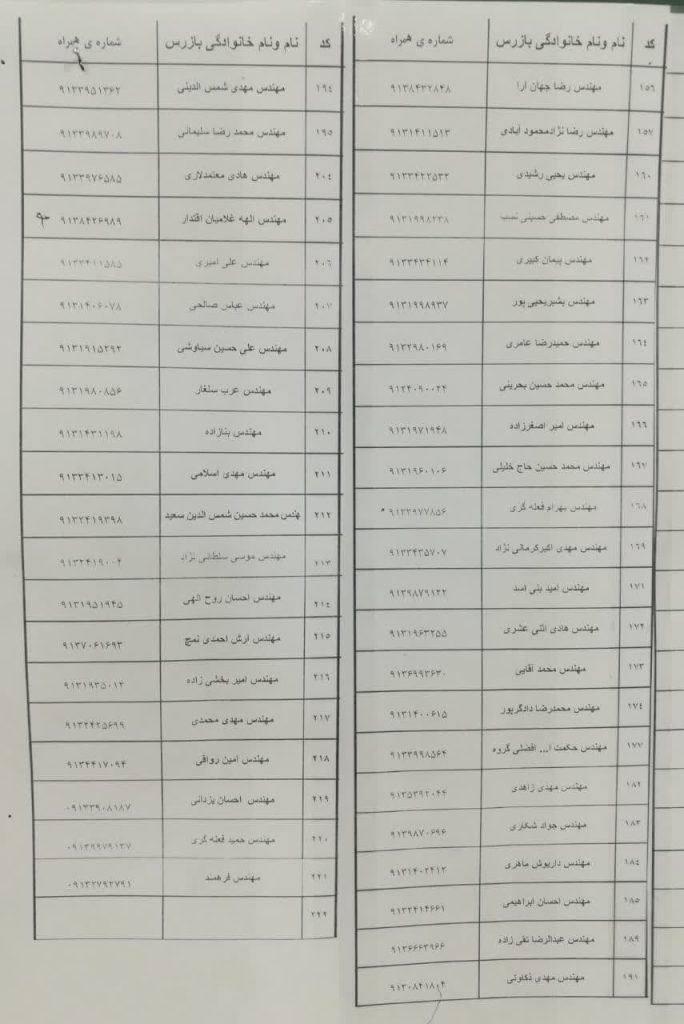 کد نام ونام خانوادگی بازرس شماره ی همراه
۱۵۶ مهندس رضا جهان آرا ۹۱۳۸۴۳۲۸۴۸
۱۵۷ مهندس رضا نژادمحمود آبادی ۹۱۳۱۴۱۱۵۱۳
۱۶۰ مهندس یحیی رشیدی ۹۱۳۳۴۲۲۵۳۲
۱۶۱ مهندس مصطفی حسینی نسب ۹۱۳۱۹۹۸۲۳۸
۱۶۲ مهندس پیمان کبیری ۹۱۳۳۴۳۴۱۱۴
۱۶۳ مهندس بشیریحیی پور ۹۱۳۱۹۹۸۹۳۷
۱۶٤ مهندس حمیدرضا عامری ۹۱۳۲۹۸۰۱۶۹
۱۶۵ مهندس محمد حسین بحرینی ۹۱۲۴۰۹۰۰۲۴
۱۶۶ مهندس امیر اصغرزاده ۹۱۳۱۹۷۱۹۴۸
۱۶۷ مهندس محمد حسین حاج خلیلی ۹۱۳۱۹۶۰۱۰۶
۱۶۸ مهندس بهرام فعله گری ۹۱۳۳۹۷۷۸۵۶
۱۶۹ مهندس مهدی اکبرکرمالی نژاد ۹۱۳۳۴۳۵۷۰۷
۱۷۱ مهندس امید بنی اسد ۹۱۳۹۸۷۹۱۲۲
۱۷۲ مهندس هادی اثنی عشری ۹۱۳۱۹۶۳۲۵۵
۱۷۳ مهندس محمد آقایی ۹۱۳۶۹۹۳۶۳۰
۱۷٤ مهندس محمدرضا دادگرپور ۹۱۳۱۴۰۰۶۱۵
۱۷۷ مهندس حکمت ا... افضلی گروه ۹۱۳۳۹۹۸۵۶۴
۱۸۲ مهندس مهدی زاهدی ۹۱۳۵۳۹۲۰۴۴
۱۸۳ مهندس جواد شکاری ۹۱۳۹۸۷۰۶۹۶
۱۸٤ مهندس داریوش ماهری ۹۱۳۱۴۰۲۴۱۳
۱۸۵ مهندس احسان ابراهیمی ۹۱۳۲۴۱۴۶۶۱
۱۸۹ مهندس عبدالرضا تقی زاده ۹۱۳۶۶۶۳۹۶۶
۱۹۱ مهندس مهدی ذکاوتی ۹۱۳۰۸۴۱۸۰۴
کد نام ونام خانوادگی بازرس شماره ی همراه
۱۹٤ مهندس مهدی شمس الدینی ۹۱۳۳۹۵۱۳۶۲
۱۹۵ مهندس محمد رضا سلیمانی ۹۱۳۳۹۸۹۷۰۸
۲۰٤ مهندس هادی معتمدلاری ۹۱۳۳۹۷۶۵۸۵
۲۰۵ مهندس الهه غلامیان اقتدار ۹۱۳۸۴۲۶۹۸۹
۲۰۶ مهندس علی امیری ۹۱۳۳۴۱۱۵۸۵
۲۰۷ مهندس عباس صالحی ۹۱۳۱۴۰۶۰۷۸
۲۰۸ مهندس علی حسین سیاوشی ۹۱۳۱۹۱۵۲۹۲
۲۰۹ مهندس عرب سنغار ۹۱۳۱۹۸۰۸۵۶
۲۱۰ مهندس بنازاده ۹۱۳۱۴۳۱۱۹۸
۲۱۱ مهندس مهدی اسلامی ۹۱۳۳۴۱۳۰۱۵
۲۱۲ مهندس محمد حسین شمس الدین سعید ۹۱۳۲۴۱۹۳۹۸
۲۱۳ مهندس موسی سلطانی نژاد ۹۱۳۲۴۱۹۰۰۴
۲۱٤ مهندس احسان روح الهی ۹۱۳۱۹۵۱۹۴۵
۲۱۵ مهندس آرش احمدی نمچ ۹۱۳۷۰۶۱۶۹۳
۲۱۶ مهندس امیر بخشی زاده ۹۱۳۱۹۳۵۰۱۲
۲۱۷ مهندس مهدی محمدی ۹۱۳۲۴۲۵۶۹۹
۲۱۸ مهندس امین رواقی ۹۱۳۴۴۱۷۰۹۴
۲۱۹ مهندس احسان یزدانی ۰۹۱۳۳۹۰۸۱۸۷
۲۲۰ مهندس حمید فعله گری ۰۹۱۳۹۹۷۹۱۳۷
۲۲۱ مهندس فرهمند ۰۹۱۳۲۷۹۲۷۹۱
۲۲۲